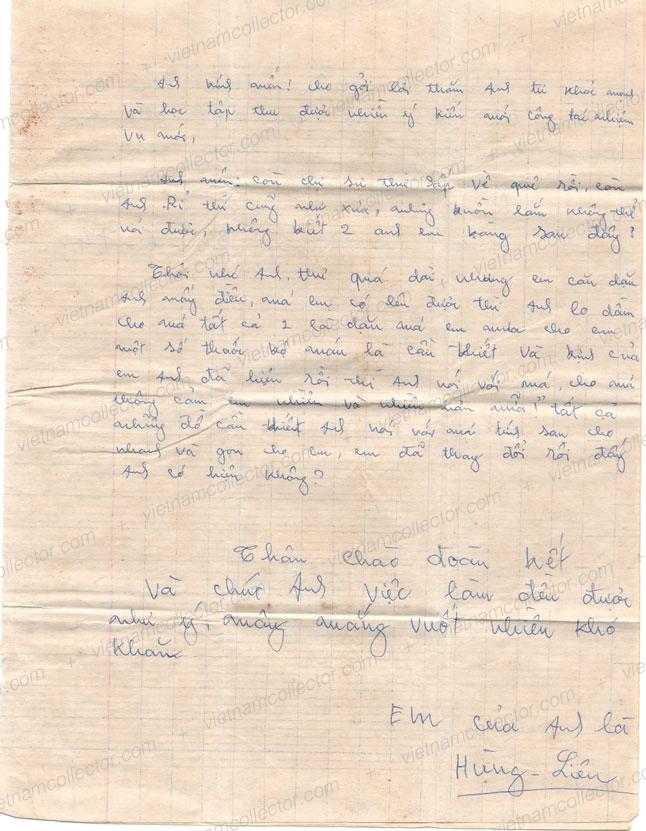 Anh kính mến! cho gởi lời thăm Anh từ khỏe mạnh
và học tập thu được nhiều ý kiến mới công tác nhiệm
vụ mới,
Anh mến: còn chị sử thư sắp về quê rồi, còn
Anh thì cũng như xưa, nhưng khổ lắm không thể
nói được, không biết 2 anh em bằng sau đây?
Thôi nhé Anh. thư quá dài, nhưng em căn dặn
Anh mấy điều, má em có lên được thì Anh lo dùm
cho má tất cả 2 là dặn má em mua cho em
một số thuốc bổ máu là cần thiết và kính của
em Anh đã hiểu rồi thì Anh nói với má, cho má
thông cảm em nhiều và nhiều hơn nữa! tất cả
những đồ cần thiết Anh nói với má tính sao cho
nhanh và gọn cho em, em đã thay đổi rồi đấy
Anh có hiểu không?
Thân chào đoàn kết
Và chúc Anh việc làm đều được
như ý, vượt nhiều khó
khăn
Em của Anh là
Hùng - Liên
vietnamcollector.com